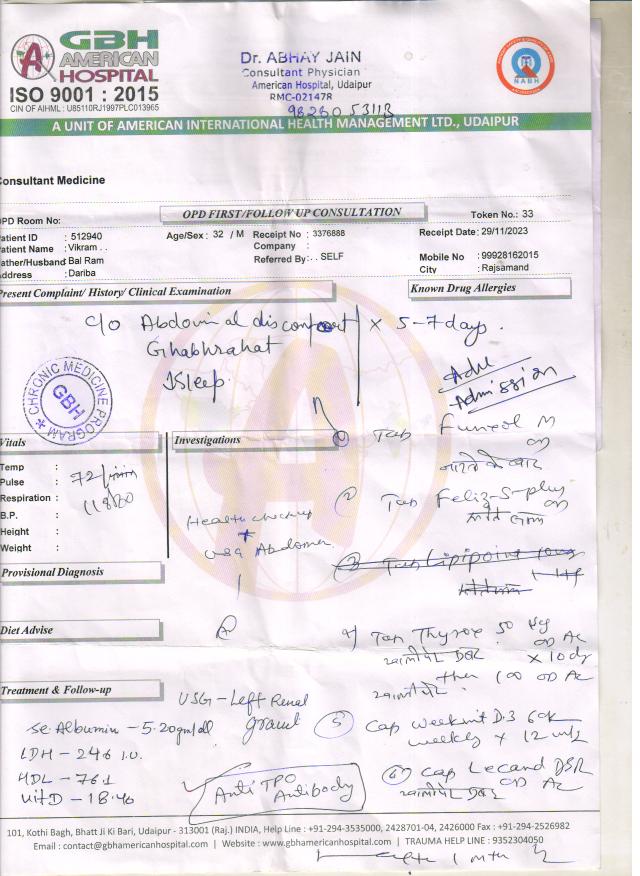 GBH
AMERICAN
HOSPITAL
ISO 9001 : 2015
CIN OF AIHML : U85110RJ1997PLC013965
Dr. ABHAY JAIN
Consultant Physician
American Hospital, Udaipur
RMC-02147R
NABH
A UNIT OF AMERICAN INTERNATIONAL HEALTH MANAGEMENT LTD., UDAIPUR
Consultant Medicine
OPD FIRST/FOLLOW UP CONSULTATION
OPD Room No:
Token No.: 33
Patient ID : 512940
Age/Sex : 32 / M
Receipt No : 3376888
Receipt Date : 29/11/2023
Patient Name : Vikram . .
Company :
Father/Husband : Bal Ram
Referred By: . . SELF
Mobile No : 99928162015
Address : Dariba
City : Rajsamand
Present Complaint/ History/ Clinical Examination
Known Drug Allergies
c/o Abdominal discomfort x 5-7 days.
Ghabhrahat
↓Sleep.
CHRONIC MEDICINE PROGRAM
GBH
Admission
Vitals
Investigations
Tab
Temp :
Pulse : 72/min
Respiration :
B.P. : 118/80
Height :
Weight :
Health checkup
+
USG Abdomen
Tab Feliz-S-plus
Tab Lipipoint
Provisional Diagnosis
Diet Advise
Tab Thyrox 50 OD AC
x 10 dy
then 100 OD AC
Treatment & Follow-up
USG - Left Renal
gravel
Se. Albumin - 5.20 gm/dl
LDH - 246 I.U.
HDL - 76.1
Vit D - 18.40
5 Cap D3 60k
weekly x 12
Anti TPO
Antibody
6 Cap DSR
OD AC
101, Kothi Bagh, Bhatt Ji Ki Bari, Udaipur - 313001 (Raj.) INDIA, Help Line : +91-294-3535000, 2428701-04, 2426000 Fax : +91-294-2526982
Email : contact@gbhamericanhospital.com | Website : www.gbhamericanhospital.com | TRAUMA HELP LINE : 9352304050
1 mth